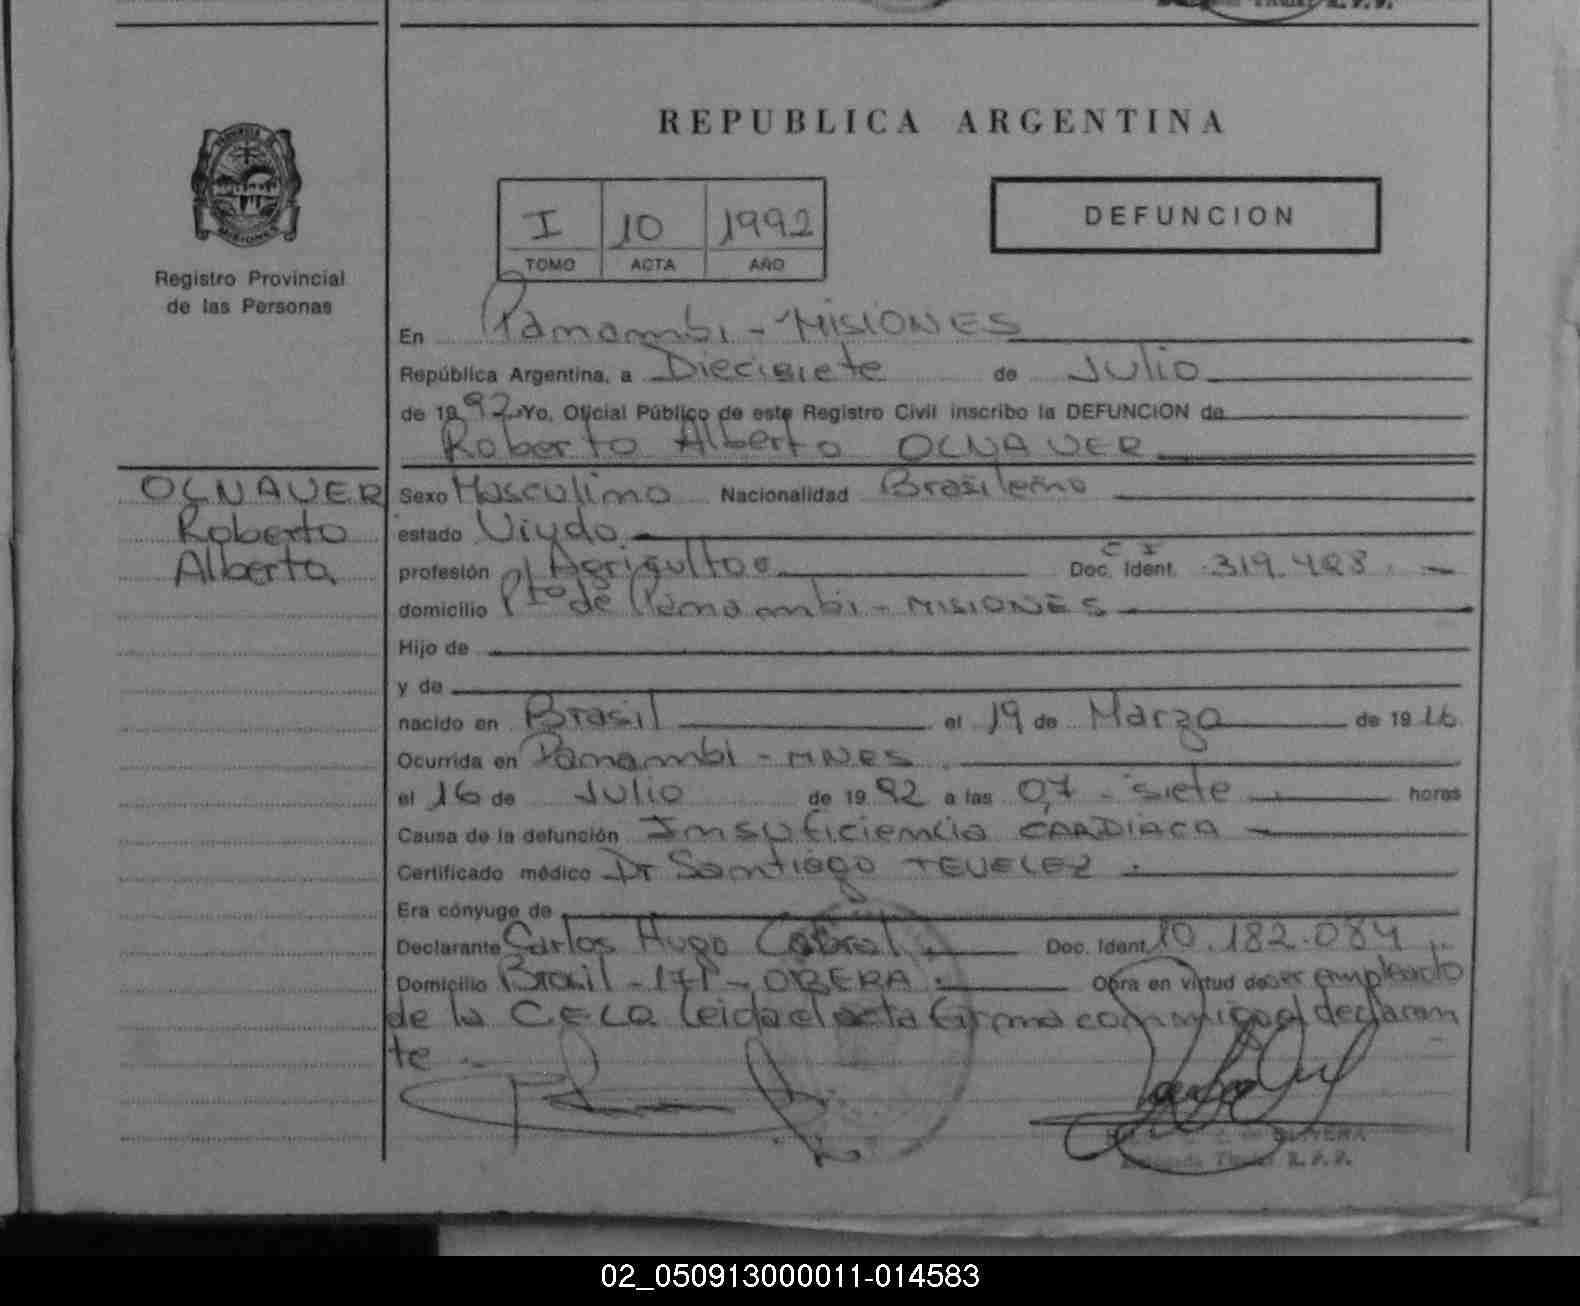 REPUBLICA ARGENTINA
I 10 1992
TOMO ACTA AÑO
DEFUNCION
PROVINCIA
MISIONES
Registro Provincial
de las Personas
En Panambi - MISIONES
República Argentina, a Diecisiete de Julio
de 1992 Yo, Oficial Público de este Registro Civil inscribo la DEFUNCION de
Roberto Alberto OLNAUER
OLNAUER
Roberto
Alberto
Sexo Masculino Nacionalidad Brasileño
estado Viudo
profesión Agricultor Doc. Ident. C I 319.428
domicilio Pto de Panambi - MISIONES
Hijo de
y de
nacido en Brasil el 19 de Marzo de 19 16
Ocurrida en Panambi - MNES
el 16 de Julio de 19 92 a las 07 - siete horas
Causa de la defunción Insuficiencia CARDIACA
Certificado médico Dr Santiago TEVELEZ
Era cónyuge de
Declarante Carlos Hugo Cabral Doc. Ident 10.182.084
Domicilio Brasil - 171 - OBERA Obra en virtud de ser empleado
de la C.E.L.O. leida el acta firma conmigo el declaran
te.-
02_050913000011-014583